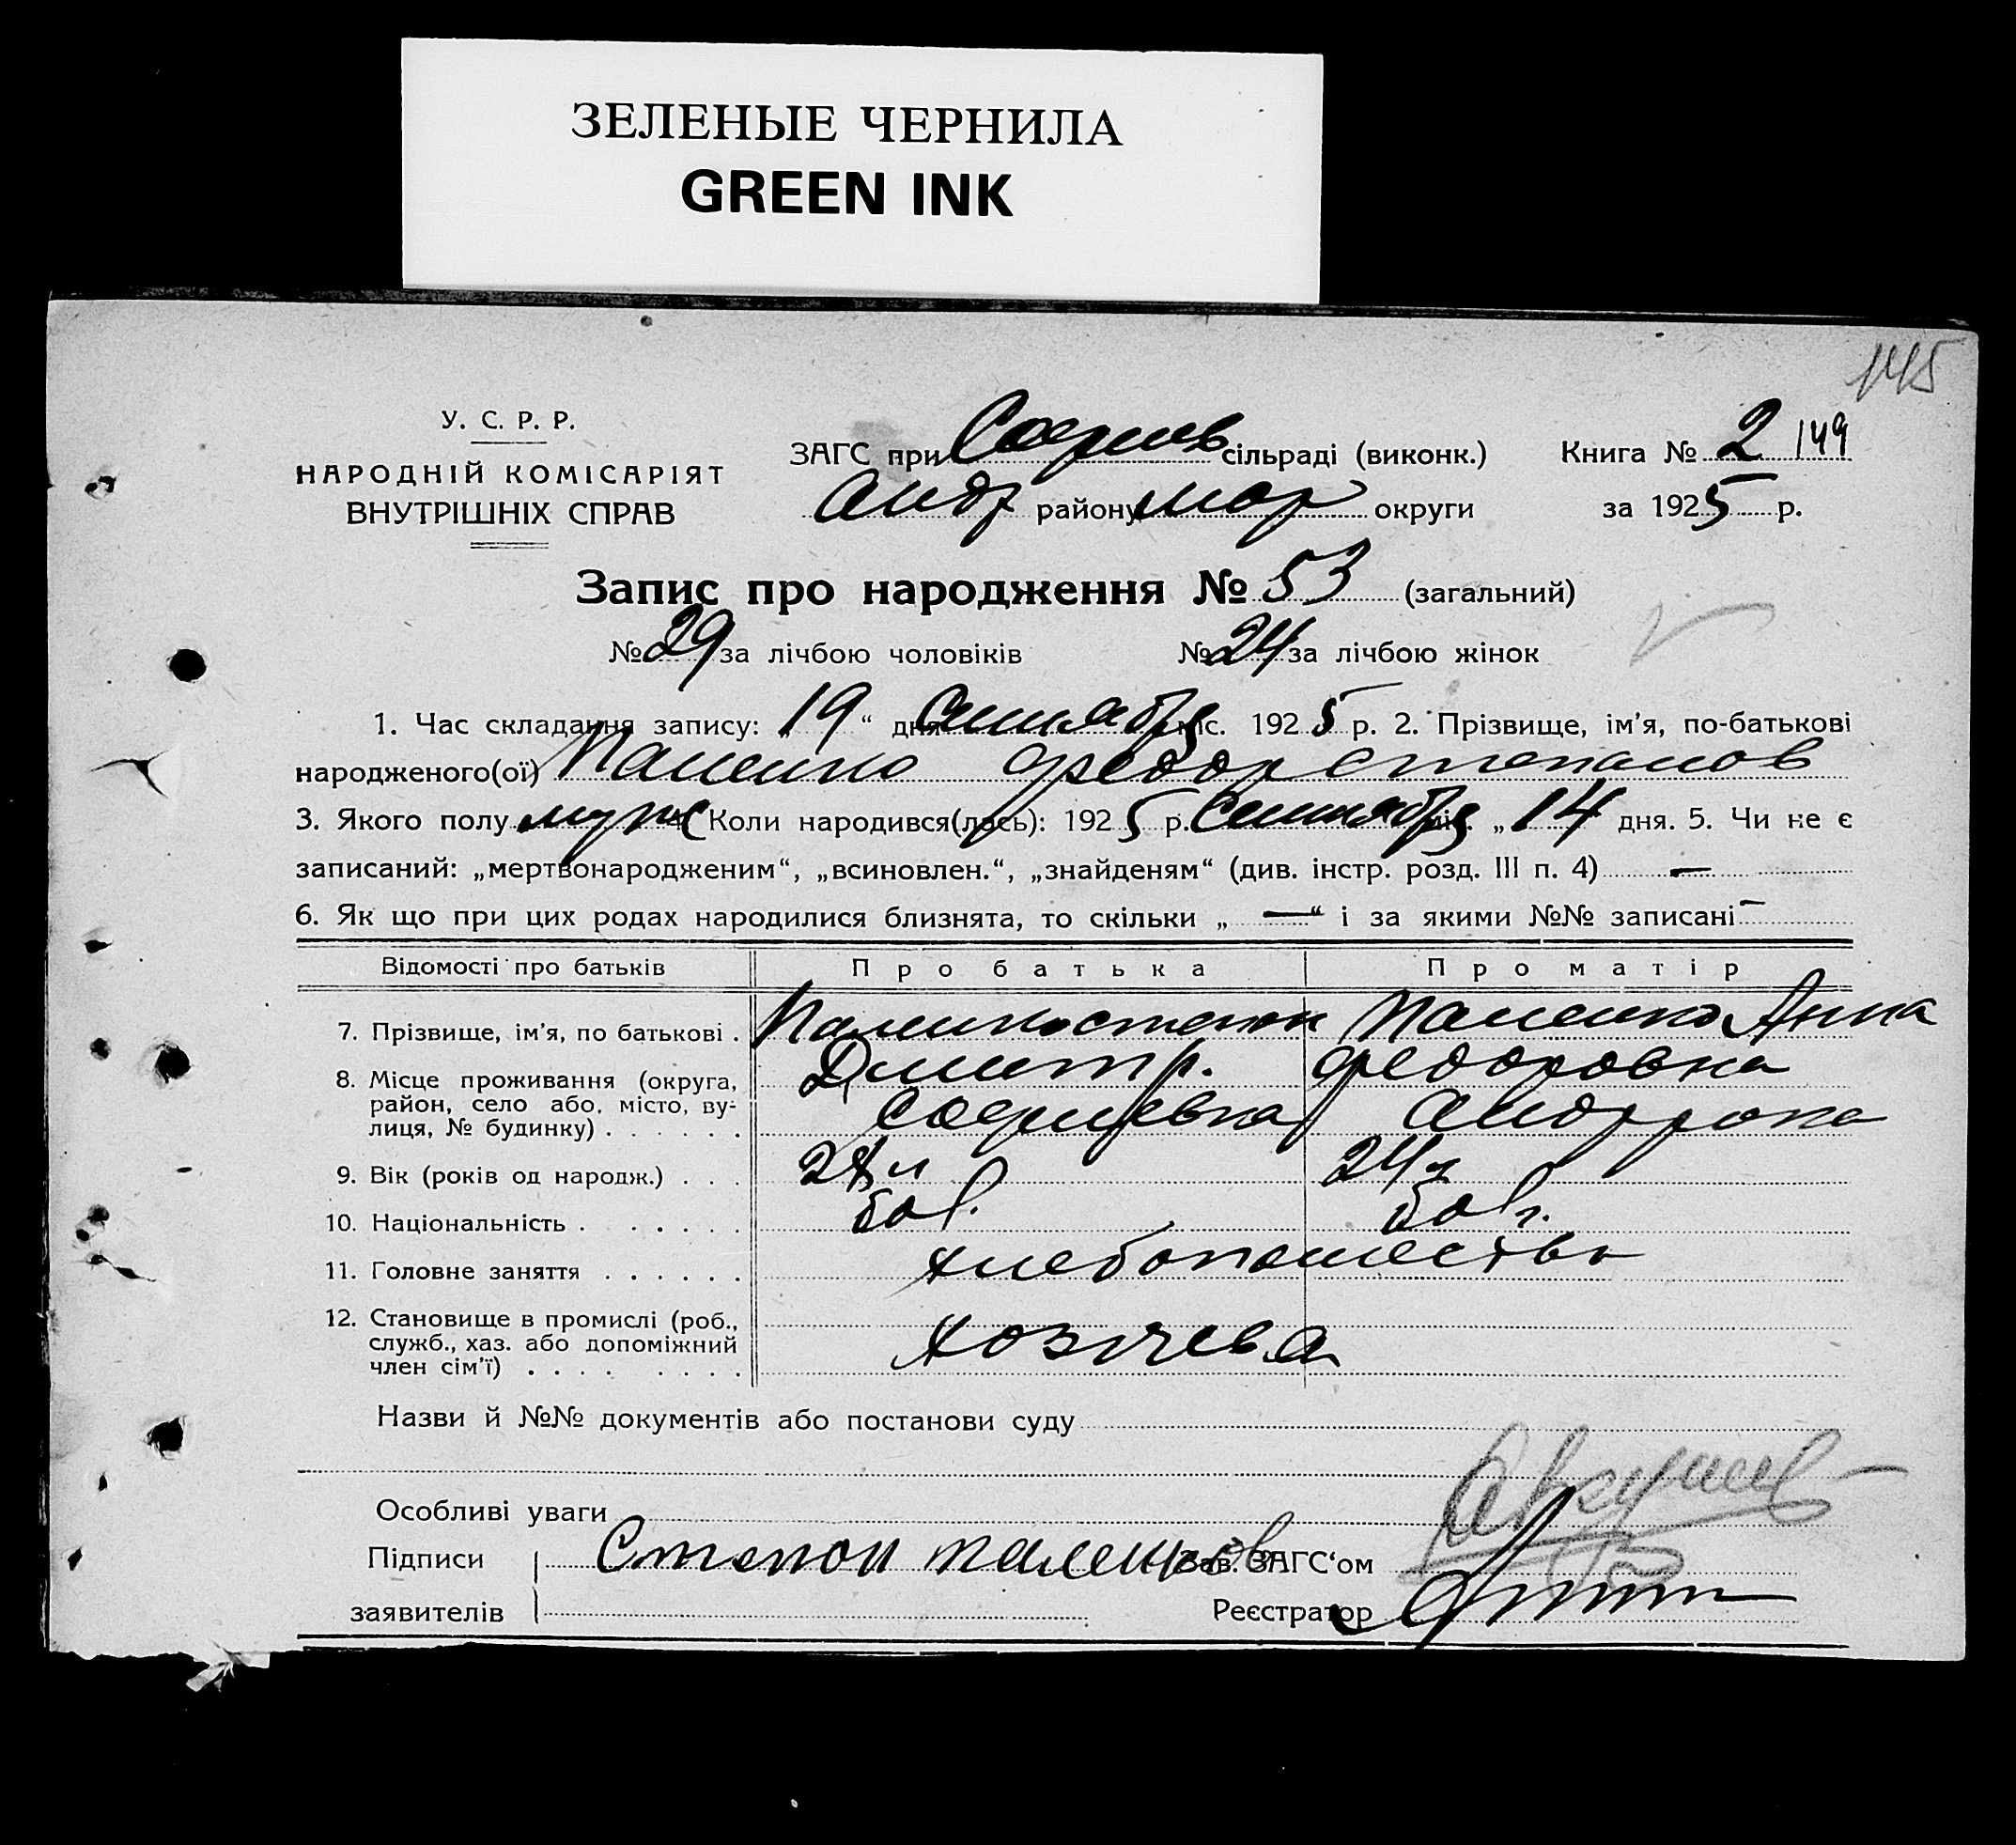 ЗЕЛЕНЫЕ ЧЕРНИЛА
GREEN INK
145
У. С. Р. Р.
НАРОДНІЙ КОМІСАРІЯТ
ВНУТРІШНІХ СПРАВ
ЗАГС при Софиев сільраді (виконк.) Книга № 2 149
Андр району Мар округи за 1925 р.
Запис про народження № 53 (загальний)
№ 29 за лічбою чоловіків № 24 за лічбою жінок
1. Час складання запису: „19“ дня Сентября міс. 1925 р. 2. Прізвище, ім’я, по-батькові
народженого(ої) Паленко Федор Степанов
3. Якого полу муж 4. Коли народився(лась): 1925 р. Сентября міс. „14 дня. 5. Чи не є
записаний: „мертвонародженим“, „всиновлен.“, „знайденям“ (див. інстр. розд. III п. 4) —
6. Як що при цих родах народилися близнята, то скільки „ — “ і за якими №№ записані —
Відомості про батьків Про батька Про матір
7. Прізвище, ім’я, по батькові . Паленко Степан Паленко Анна
Дмитр. Федоровна
8. Місце проживання (округа,
район, село або, місто, ву-
лиця, № будинку) . . . . . . Софиевка Андр района
9. Вік (років од народж.) . . . 24
10. Національність . . . . . . бол. болг.
11. Головне заняття . . . . . . хлебопашество
12. Становище в промислі (роб.,
служб., хаз. або допоміжний
член сім’ї) . . . . . . . .
Назви й №№ документів або постанови суду
Особливі уваги
Підписи Степан Паленков Зав. ЗАГС‘ом
заявителів Реєстратор